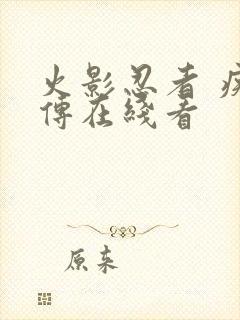 火影忍者 疾
傅在綫看
原来